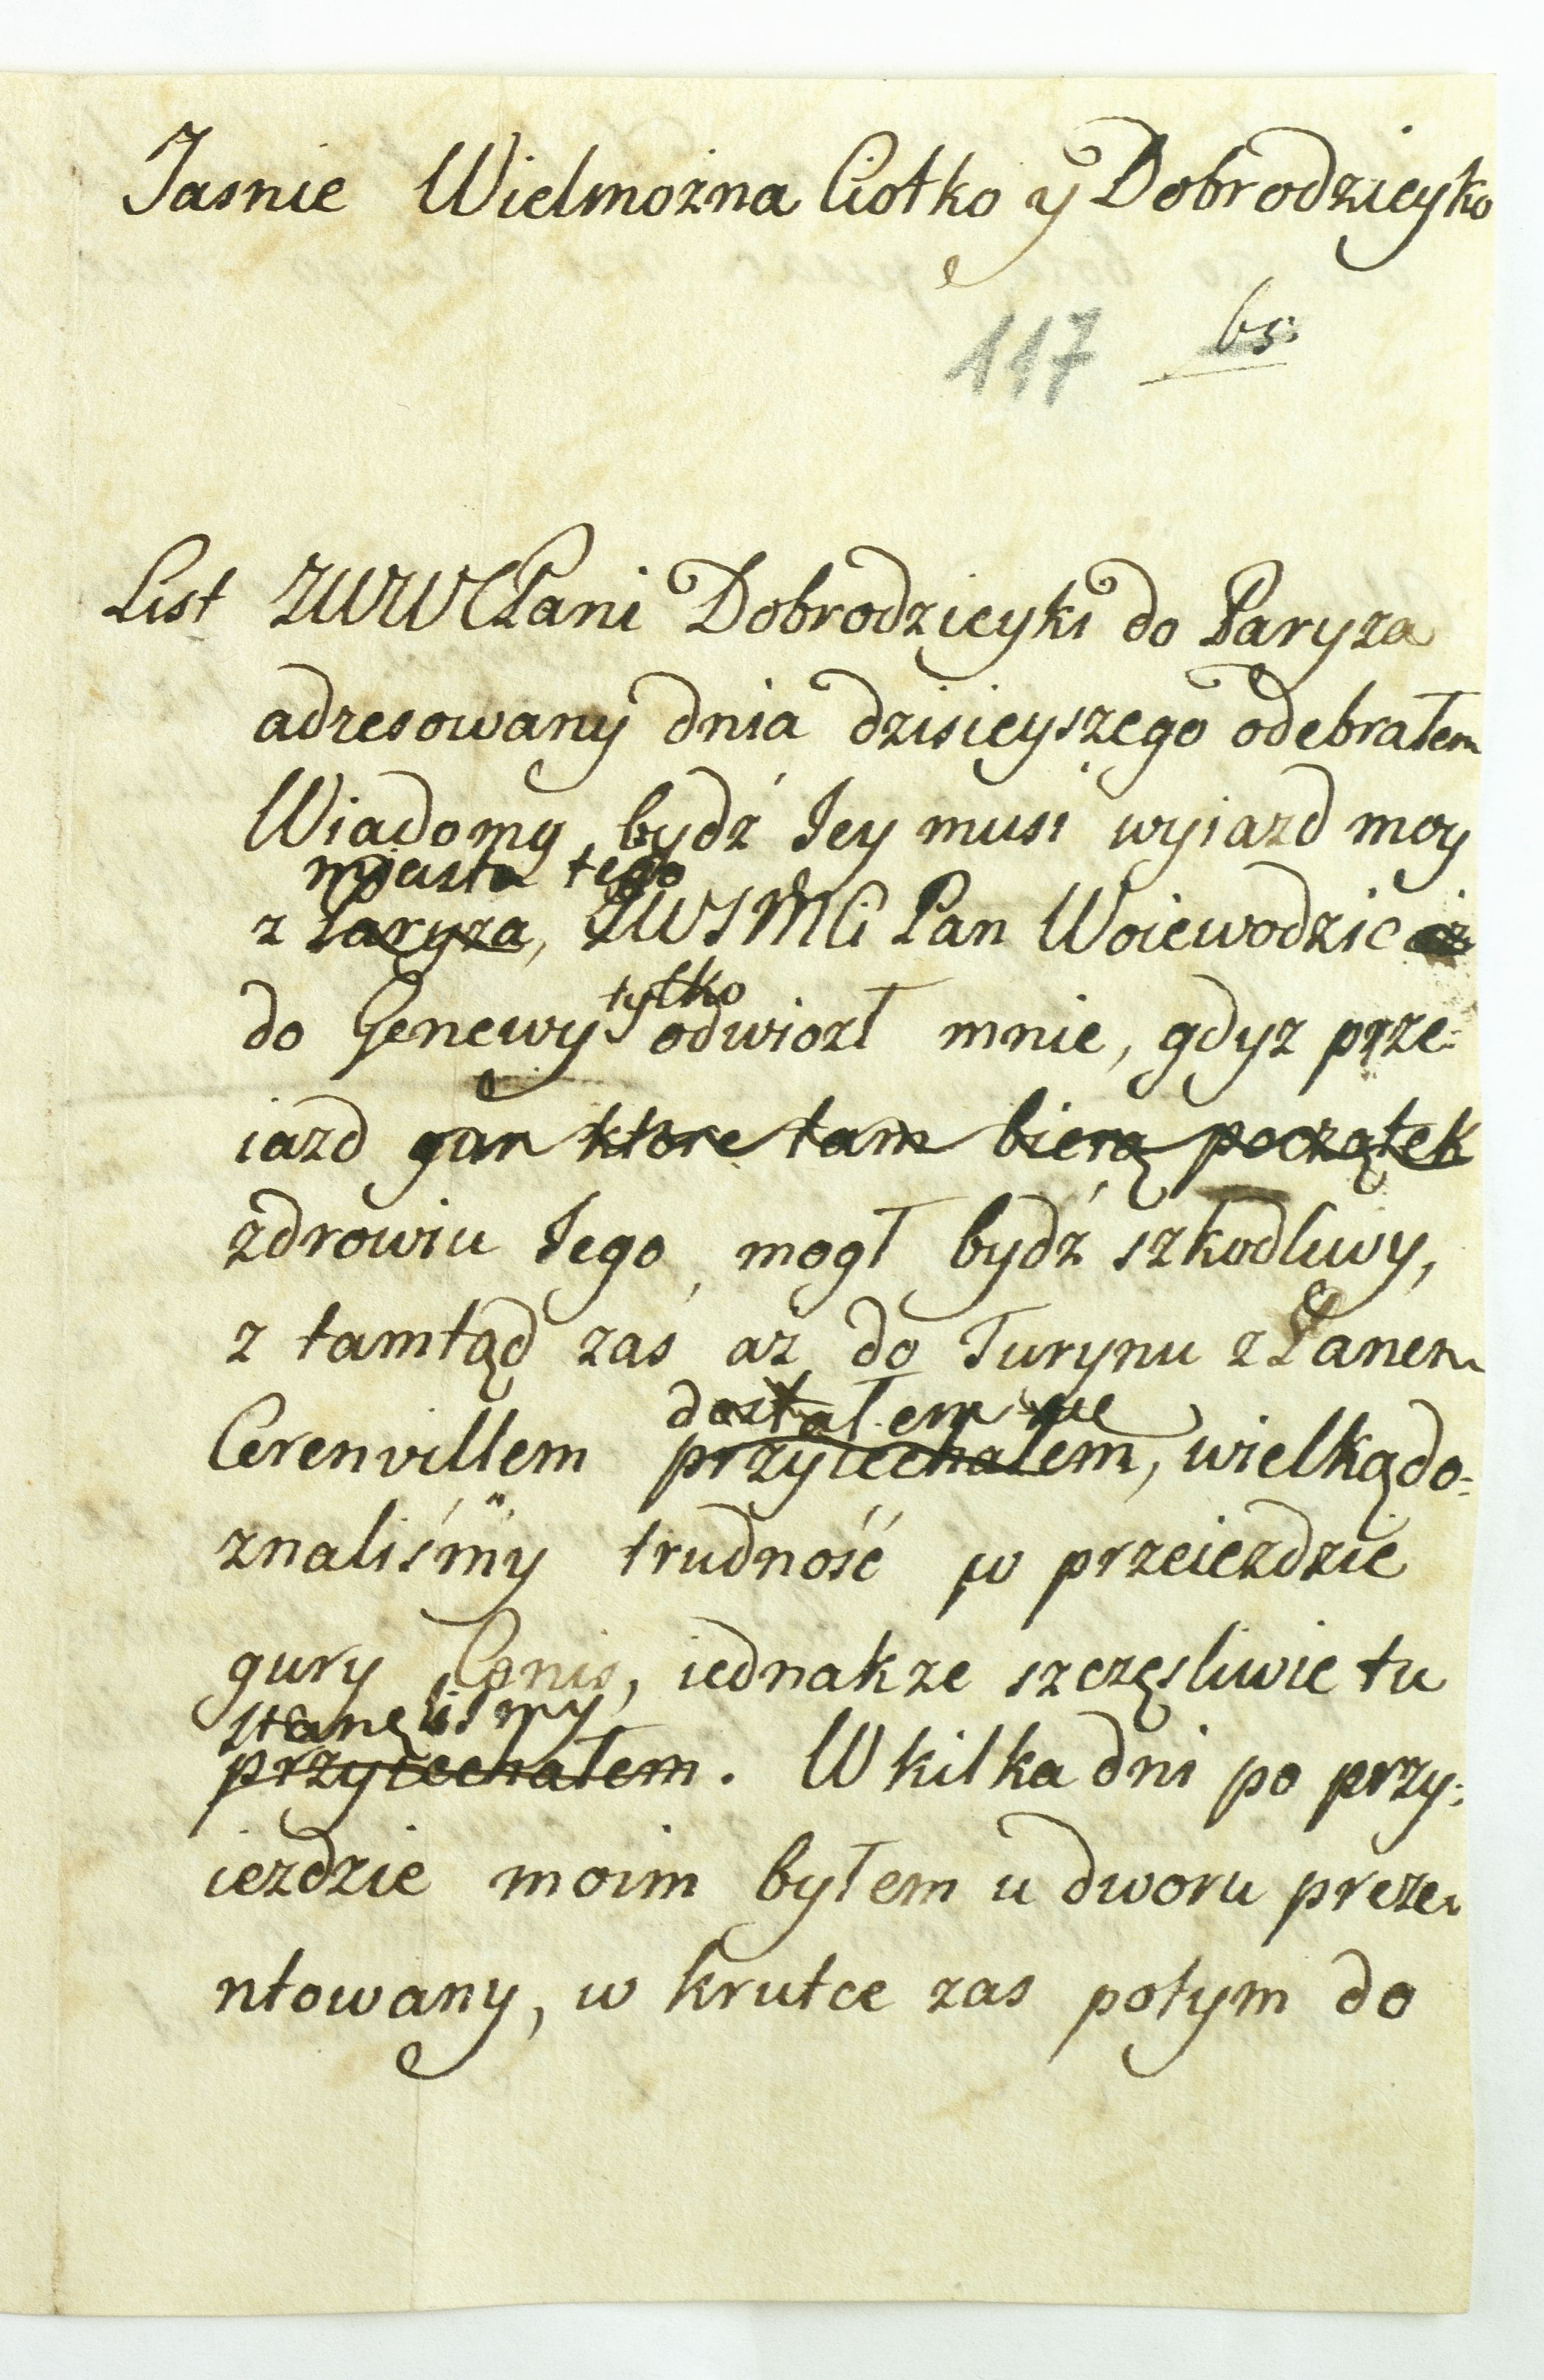 Jasnie Wielmożna Ciotko y Dobrodzieyko
117 bs.
List JWWCPani Dobrodzieyki do Paryza
adresowany dnia dzisieyszego odebrałem
Wiadomy bydź Jey musi wyiazd moy
miasta tego
z Paryza, JWJMCi Pan Woiewodzic aż
tylko
do Genewy odwiozł mnie, gdyz prze-
iazd gur ktore tam biorą początek
zdrowiu Jego, mogł bydź szkodliwy,
z tamtąd zas aż do Turynu z Panem
dostałem się
Cerenvillem przyiechałem, wielką do-
znaliśmy trudność w przeieździe
gury Cenis, iednakze szczęsliwie tu
stanęlismy
przyiechałem. W kilka dni po przy-
iezdzie moim byłem u dworu preze-
ntowany, w krutce zas potym do